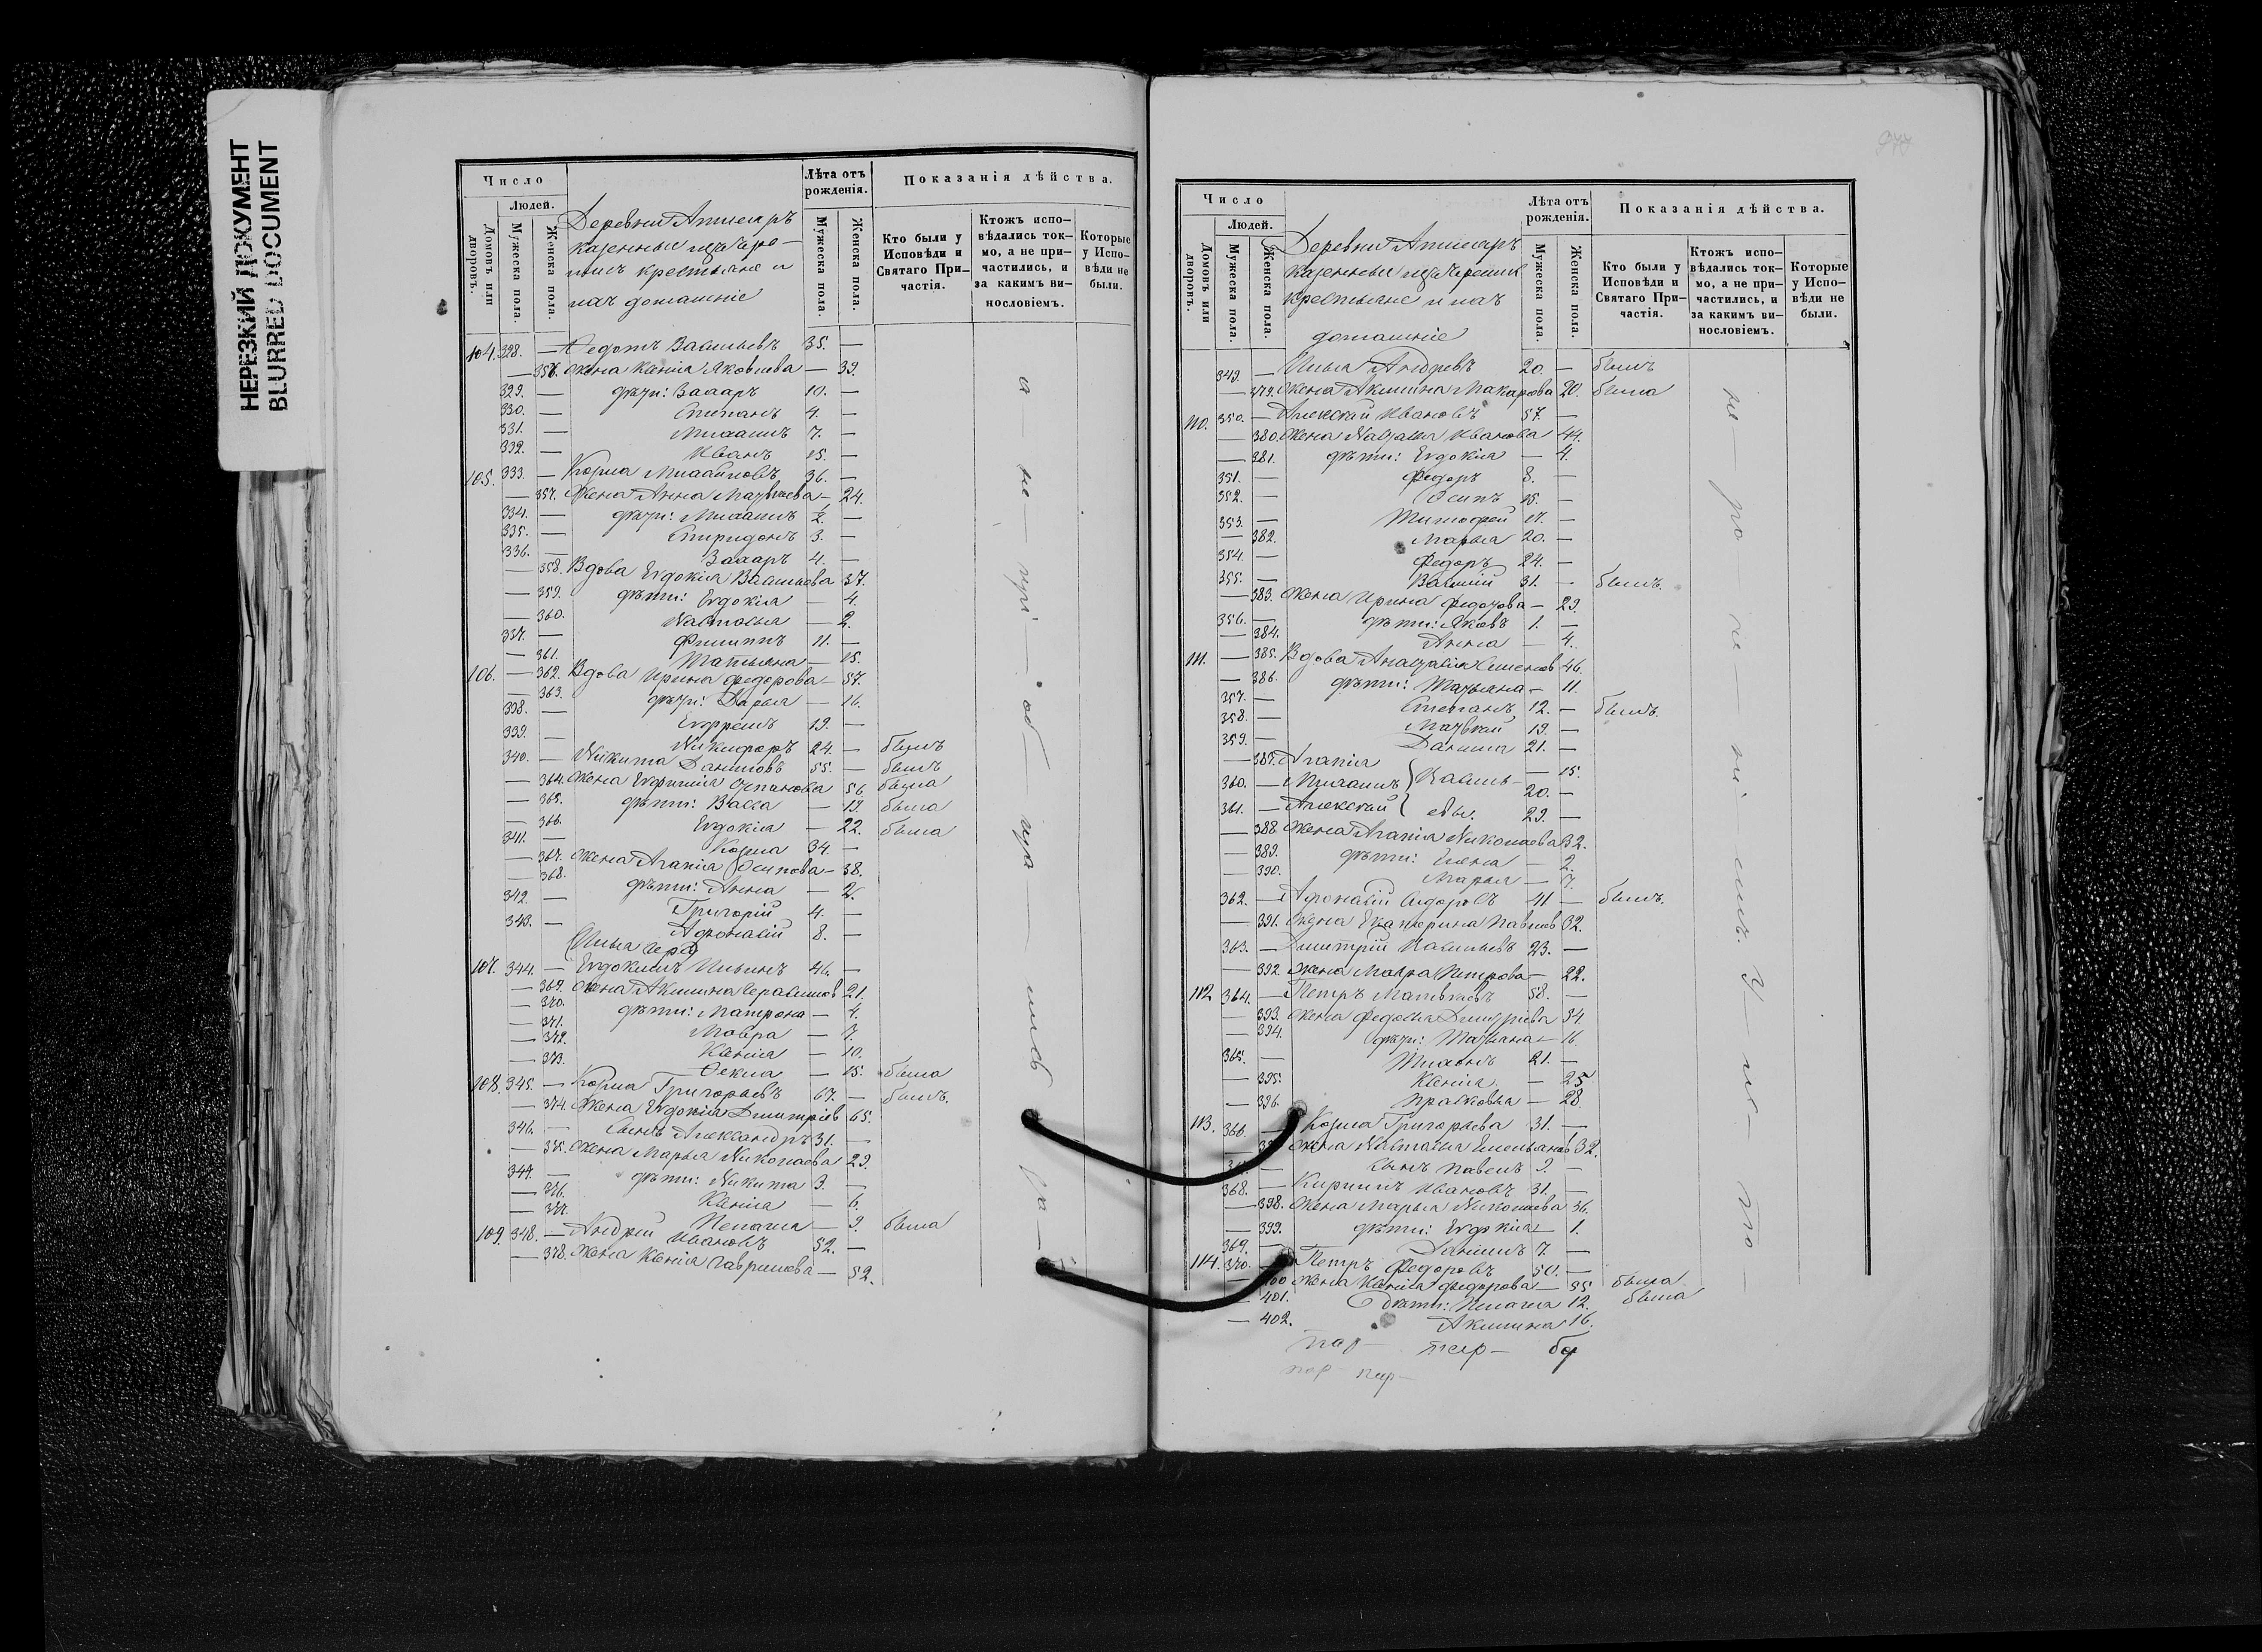 НЕРЕЗКИЙ ДОКУМЕНТ
BLURRED DOCUMENT
Число
Людей.
Домовъ или дворовъ.
Мужеска пола.
Женска пола.
Деревни
казенные
крестьяне и
ихъ домашніе
Лѣта отъ рожденія.
Мужеска пола.
Женска пола.
Показанія дѣйства.
Кто были у Исповѣди и Святаго Причастія.
Ктожъ исповѣдались токмо, а не причастились, и за какимъ винословіемъ.
Которые у Исповѣди не были.
104. 328. — Федотъ Васильевъ 35. —
— 356. Жена Ксенія Яковлева — 39.
329. — дѣти: Захаръ 10. —
330. — Степанъ 4. —
331. — Михаилъ 7. —
332. — Иванъ 15. —
105. 333. — Козма Михайловъ 36. —
— 357. Жена Анна Матвѣева — 24.
334. — дѣти: Михаилъ ½. —
335. — Спиридонъ 3. —
336. — Захаръ 4. —
— 358. Вдова Евдокія Васильева 37.
— 359. дѣти: Евдокія — 4.
— 360. Настасья — 2.
337. — Филиппъ 11. —
— 361. Татьяна — 15.
106. — 362. Вдова Ирина Федорова — 57.
— 363. дѣти: Дарья — 16.
338. — Ефремъ 19. —
339. — Никифоръ 24. — былъ
340. — Никита Даниловъ 55. — былъ
— 364. Жена Евфимія Степанова 56. была
— 365. дѣти: Васса — 19. была
— 366. Евдокія — 22. была
341. — Козма 34. —
— 367. Жена Агапія Осипова — 38.
— 368. дѣти: Анна — 2.
342. — Григорій 4. —
343. — Афонасій 8. —
107. 344. — Евдокимъ Ильинъ 46. —
— 369. Жена Акилина Герасимов 21.
— 370. дѣти: Матрона — 4.
— 371. Мавра — 7.
— 372. Ксенія — 10.
— 373. Фекла — 15. была
108. 345. — Козма Григорьевъ 67. — былъ.
— 374. Жена Евдокія Дмитріев 65.
346. — Сынъ Александръ 31. —
— 375. Жена Марья Николаева 29.
347. — дѣти: Никита 3. —
— 376. Ксенія — 6.
— 377. Пелагія — 9. была
109. 348. — Андрей Ивановъ 52. —
— 378. Жена Ксенія Гаврилова — 52.
Число
Людей.
Домовъ или дворовъ.
Мужеска пола.
Женска пола.
Деревни
казенные
крестьяне и ихъ
домашніе
Лѣта отъ рожденія.
Мужеска пола.
Женска пола.
Показанія дѣйства.
Кто были у Исповѣди и Святаго Причастія.
Ктожъ исповѣдались токмо, а не причастились, и за какимъ винословіемъ.
Которые у Исповѣди не были.
349. — Илья Андревъ 20. — былъ
— 379. Жена Акилина Макарова 20. была
110. 350. — Алексѣй Ивановъ 57. —
— 380. Жена Наталья Иванова 44.
— 381. дѣти: Евдокія — 4.
351. — Федоръ 8. —
352. — Осипъ 15. —
353. — Тимофей 17. —
— 382. Марья 20. —
354. — Федоръ 24. —
355. — Василій 31. — былъ.
— 383. Жена Ирина Федотова — 29.
356. — дѣти: Яковъ 1. —
— 384. Анна — 4.
111. — 385. Вдова Анастасія Семенов 46.
— 386. дѣти: Татьяна — 11.
357. — Степанъ 12. — былъ.
358. — Матвѣй 19. —
359. — Данила 21. —
— 387. Агапія — 15.
360. — Михаилъ Василь- 20. —
361. — Алексѣй евы. 29. —
— 388. Жена Агапія Николаева 32.
— 389. дѣти: Елена — 2.
— 390. Марья — 7.
362. — Афонасій Сидоровъ 41. — былъ.
— 391. Жена Екатерина Павлов 32.
363. — Дмитрій Васильевъ 23. —
— 392. Жена Мавра Петрова — 22.
112. 364. — Петръ Матвѣевъ 58. —
— 393. Жена Федосья Дмитріева 54.
— 394. дѣти: Татьяна — 16.
365. — Тихонъ 21. —
— 395. Ксенія — 25
— 396. Прасковья — 28.
113. 366. — Козма Григорьева 31. —
Жена Настасья Емельянов 32.
сынъ Павелъ 9. —
368. — Кирилъ Ивановъ 31. —
— 398. Жена Марья Николаева 36.
— 399. дѣти: Евдокія — 1.
369. — Даніилъ 7. —
114. 370. — Петръ Федоровъ 50. —
400 Жена Ксенія Федорова — 55 была
— 401. дѣти: Пелагія 12. была
— 402. Акилина 16.